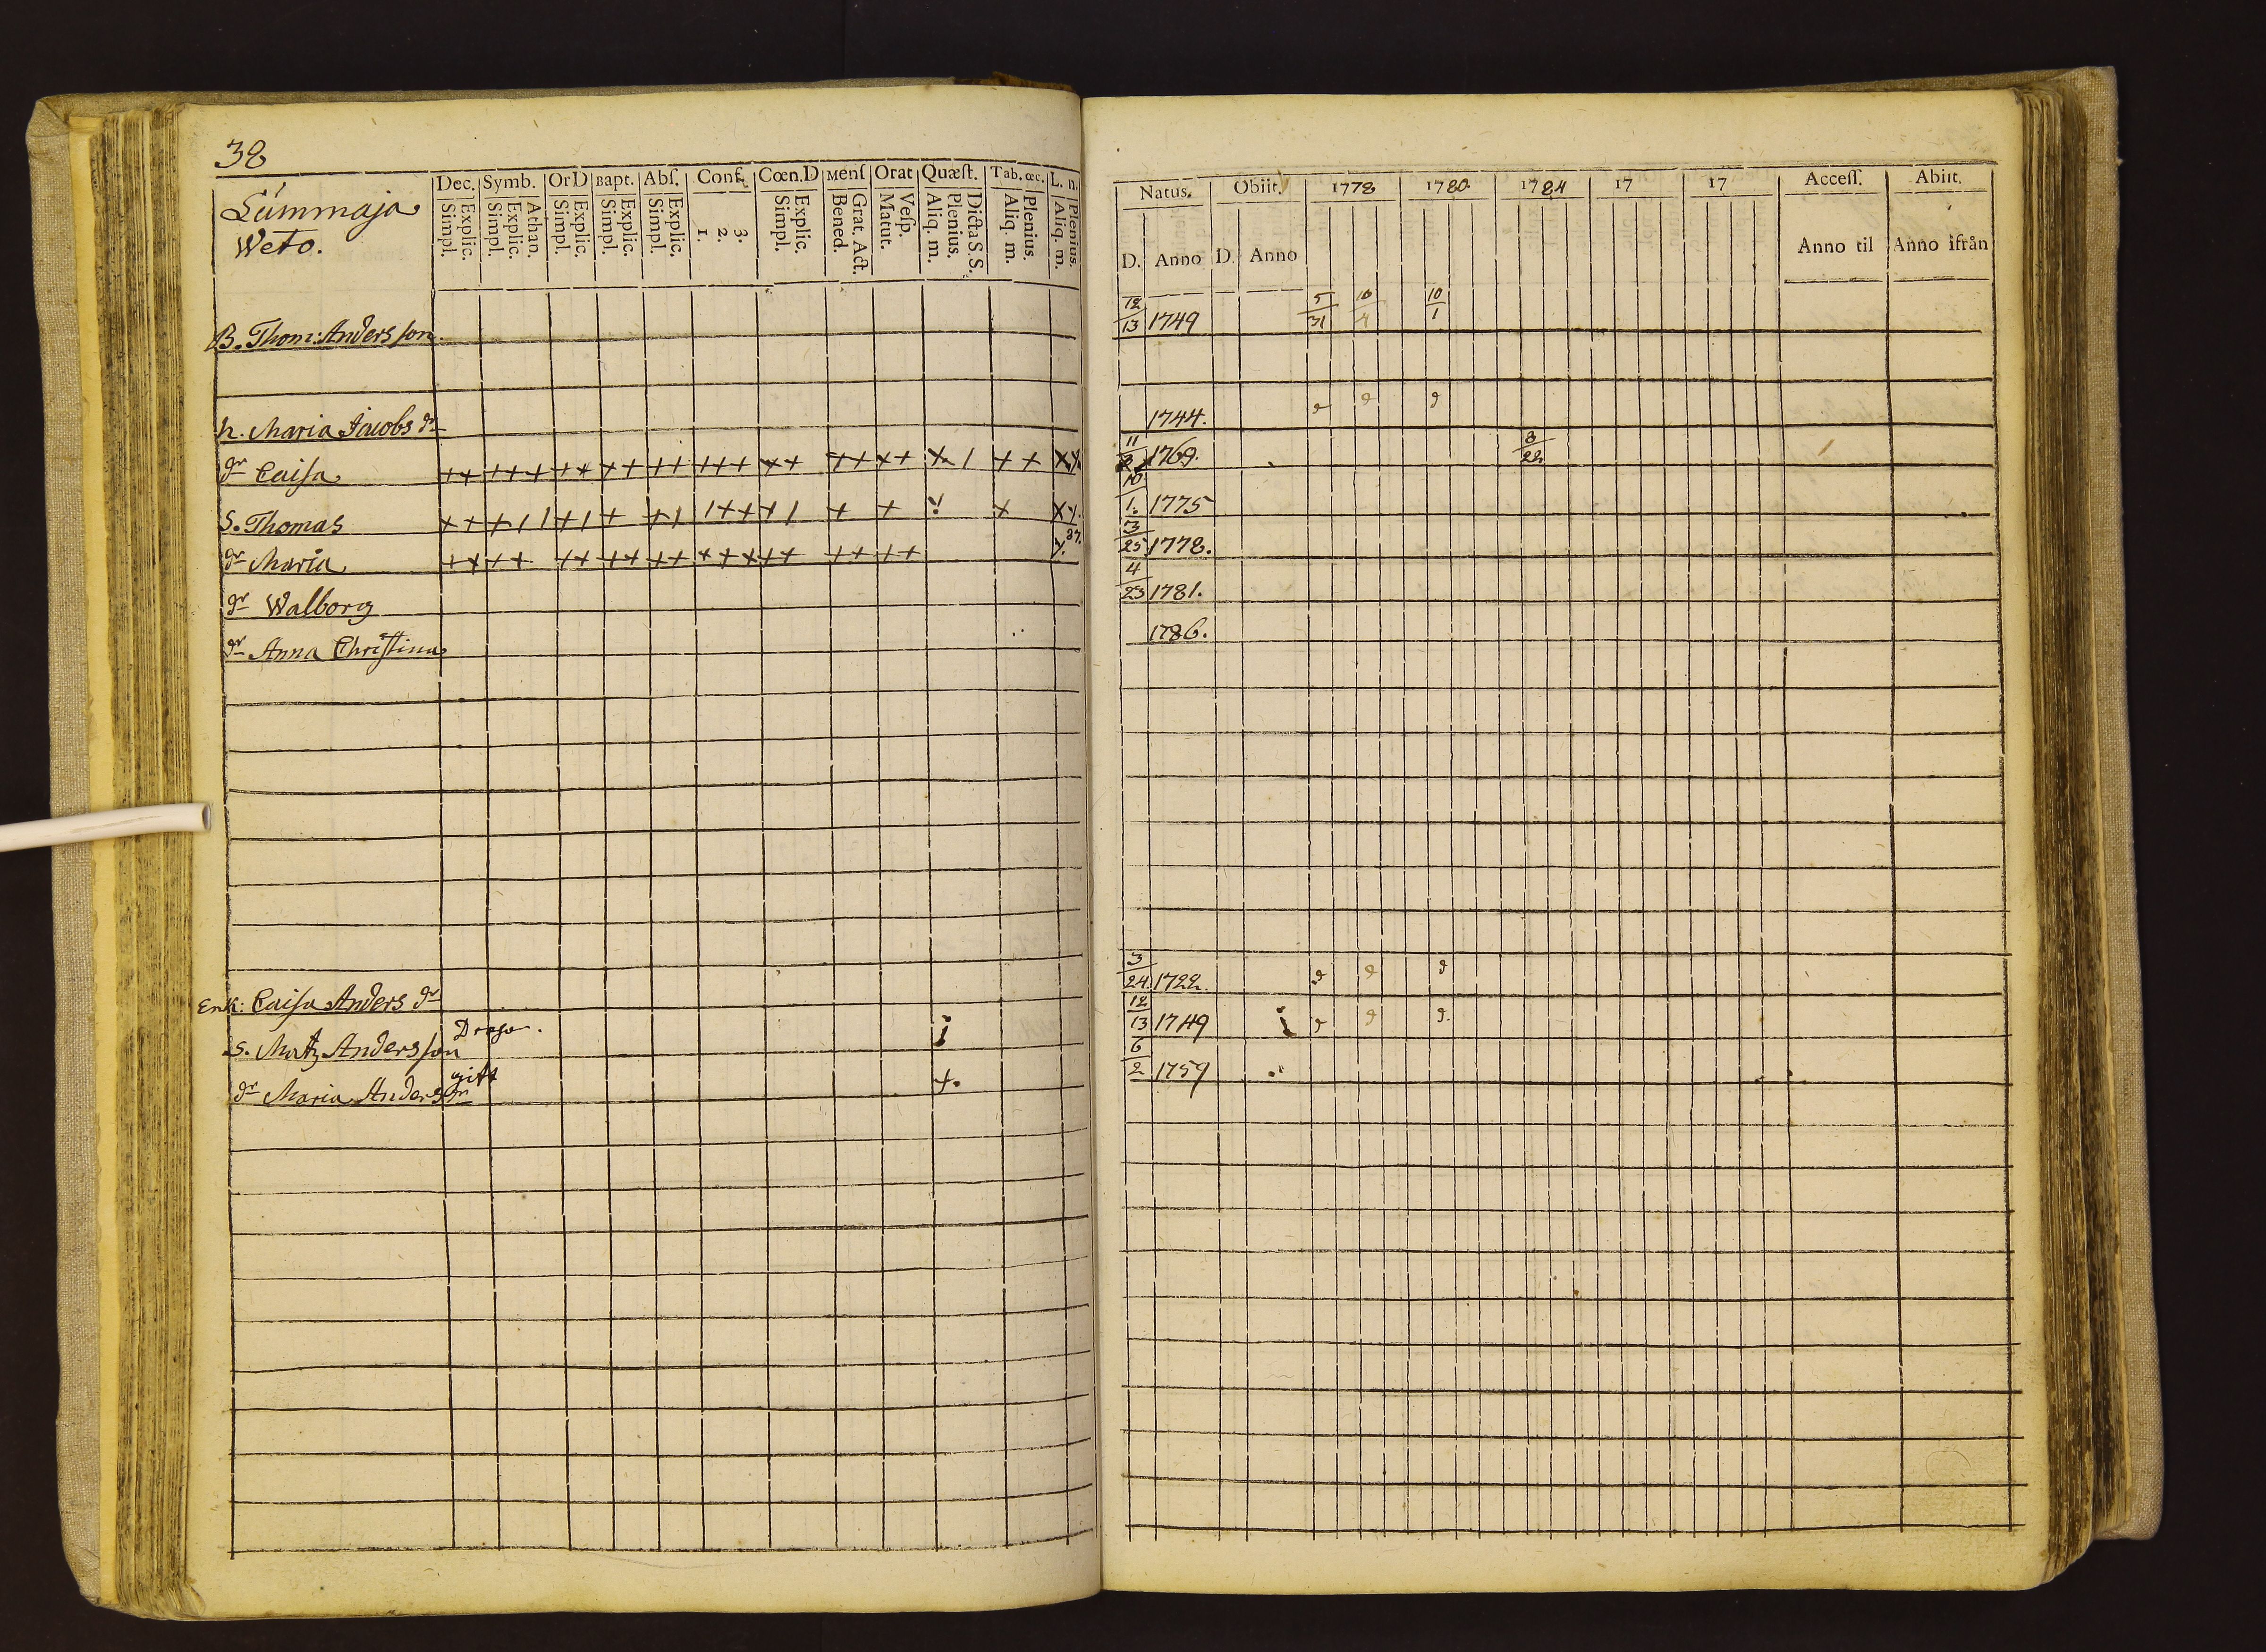 38
Lummaja
Weto.
Dec. Symb. Or D Bapt. Abſ. Conf. Cœn. D Menſ Orat Quæſt. Tab. œc. L. n.
Simpl. Explic. Simpl. Explic. Athan. Simpl. Explic. Simpl. Explic. Simpl. Explic. 1. 2. 3. Simpl. Explic. Bened. Grat. Act. Matut. Veſp. Aliq. m. Plenius. Dicta S. S. Aliq. m. Plenius. Aliq. m. Plenius.
Natus. Obiit. 1778 1780. 1784 17 17 Acceſſ. Abiit.
D. Anno D. Anno Anno til Anno ifrån
B. Thom: Andersſon 12/13 1749 5/31 10/4 10/1
h. Maria Jacobs dr 1744. d d d
dr Caiſa ++ +++ ++ ++ ++ +++ ++ ++ ++ +. / + + X X. 11/8 1769. 8/22
S. Thomas + + + / / + / + + / / + + + / + + + X X. 10/1. 1775
dr Maria ++ ++ ++ ++ ++ +++ ++ ++ ++ X. 87. 3/25 1778.
dr Walborg 4/23 1781.
dr Anna Chriſtina 1786.
Enk: Caiſa Anders dr 3/24. 1722. d d d
S. Matz Andersſon Drago. j 12/13 1749 j d d d.
dr Maria Anders dr gift +. 6/2 1759